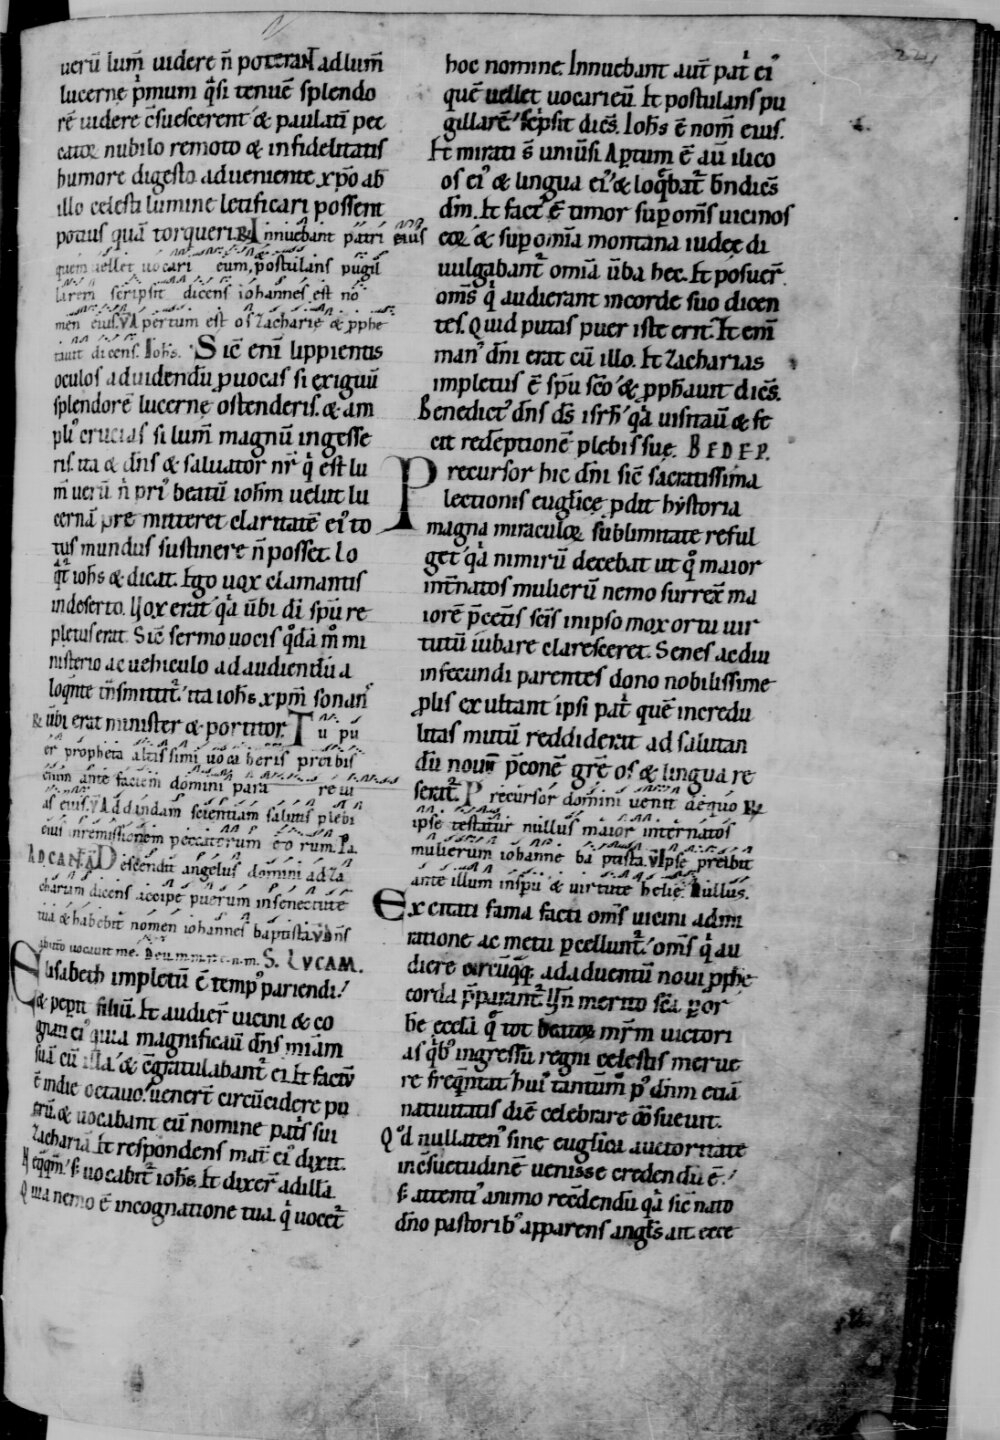 uerū lum̄ uidere n̄ poterant ad lum̄
lucernę p̍mum q̍si tenuē splendo
rē uidere c̄suescerent & paulatū pec
catoꝝ nubilo remoto & infidelitatis
humore digesto adueniente xp̄o ab
illo celesti lumine letificari possent
potius quā torqueri. ℞ Innuebant patri eius
quem uellet uocari eum, postulans pugil
larem scripsit dicens iohannes est no
men eius. V̄ Apertum est os Zacharię & pphe
tauit dicens. Ioh̄s. Sic̄ eni lippientis
oculos ad uidendū puocas si exiguū
splendorē lucernę ostenderis. & am
pli᾽ crucias si lum̄ magnū ingesse
ris. ita & dn̄s & saluator nr̄ q̍ est lu
m̄ uerū n̍ pri᾽ beatū ioh̄m uelut lu
cernā pre mitteret claritatē ei᾽ to
tus mundus sustinere n̄ posset. Io
q̄t ioh̄s & dicat. Ego uox clamantis
in deserto. Uox erat q̍a ūbi di sp̄u re
pletus erat. Sic̄ sermo uocis q̊dā m̊ mi
nisterio ac uehiculo ad audiendū a
loq̄nte tn̄smittit᷑. ita ioh̄s xp̄m sonan᷑
& ūbi erat minister & portitor. Tu pu
er propheta altissimi uoca beris preibis
enim ante faciem domini para re ui
as eius. V̄ Ad dandam scientiam salutis plebi
eius inremissionem peccatorum eorum. Pa.
AD CANTĀ Descendit angelus domini ad Za
charum dicens accipe puerum in senectute
tua & habebit nomen iohannes baptista. V̄ Dn̄s
abutero uocauit me. S. LVCAM.
Elisabeth impletū ē temp᾽ pariendi.
& pepit filiū. Et audier̄ uicini & co
gnati ei᾽ quia magnificauī dn̄s miam
suā cū illa & c̄gratulabant᷑ ei. Et factū
ē in die octauo. uenert̄ circūcidere pu
erū. & uocabant eū nomine pat̍s sui
Zachariā. Et respondens mat̄ ei᾽ dixit.
Neq̄q̄m s̄ uocabit᷑ ioh̄s. Et dixer̄ ad illā.
Quia nemo ē in cognatione tua q̍ uocet᷑
hoc nomine. Innuebant aut̄ pat̍ ei᾽
quē uellet uocari eū. Et postulans pu
gillarē sc̍psit dicēs. Ioh̄s ē nom̄ eius.
Et mirati s̄ uniūsi. Aptum ē aū ilico
os ei᾽ & lingua ei᾽ & loq̄bat᷑ bn̄dicēs
dm̄. Et fact᾽ ē timor sup om̄s uicinos
eoꝝ & sup om̄ia montana iudeę di
uulgabant᷑ omia ūba hec. Et posuer̄
om̄s q̍ audierant in corde suo dicen
tes. Quid putas puer iste erit. Et eni
man᾽ dn̄i erat cū illo. Et Zacharias
impletus ē sp̄u sc̄o & pphauit dicēs.
Benedict᾽ dn̄s ds̄ isrl̄ q̍a uisitauī & fe
cit redēptionē plebis suę. BEDE P.
Precursor hic dn̄i sic̄ sacratissima
lectionis euglicę pdit hystoria
magna miraculoꝝ sublimitate reful
get q̍a nimirū decebat ut q̊ maior
int̄ natos mulierū nemo surrex̄ ma
iorē p̄cet̄is sc̄is in ipso mox ortu uir
tutū iubare claresceret. Senes ac diu
infecundi parentes dono nobilissime
plis exultant ipsi pat̍ quē incredu
litas mutū reddiderat ad salutan
dū nouū p̄conē grę̄ os & lingua re
serat᷑. Precursor domini uenit de quo ℞
ipse testatur nullus maior internatos
mulierum iohanne baptista. V̄ Ipse preibit
ante illum in sp̄u & uirtute helie. Nullus.
Excitati fama facti om̄s uicini admi
ratione ac metu pcellunt᷑. om̄s q̍ au
diere circūq̄q̄ ad aduentū noui pphe
corda p̄parant᷑. Un̄ merito sc̄a p or
bē ecclā q̄ tot beatoꝝ mr̄m uictori
as q̍b᾽ ingressū regni celestis merue
re freq̄ntat hui᾽ tantum̄ p᾽ dn̄m etiā
natiuitatis diē celebrare c̄sueuit.
Q᾽d nullaten᾽ sine euglica auctoritate
in c̄suetudinē uenisse credendū ē.
s̄ attenti᾽ animo recēdendū q̍a sic̄ nato
dn̄o pastorib᾽ apparens angl̄s ait. ecce